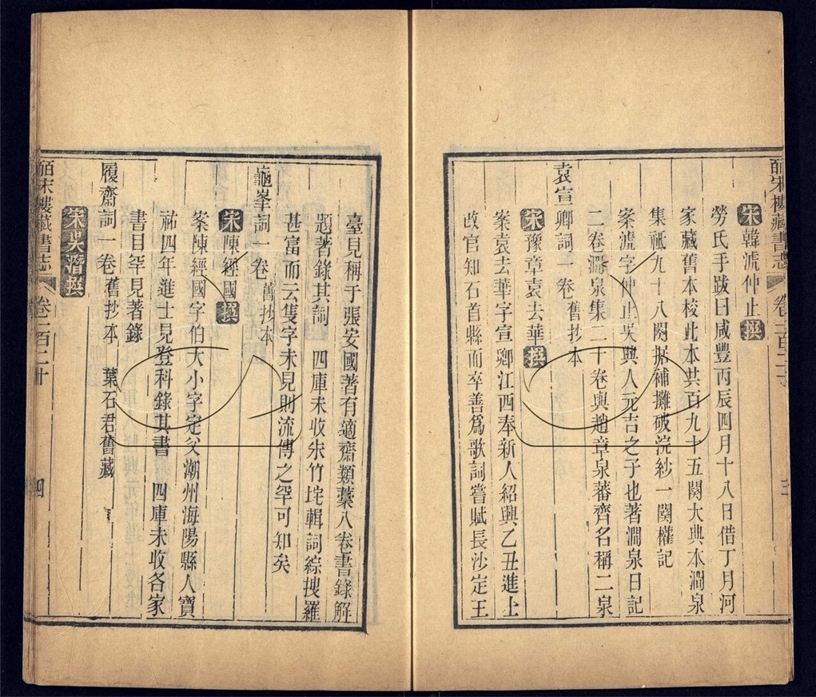 皕宋樓藏書志 卷一百二十
宋韓淲仲止撰
勞氏手跋曰咸豐丙辰四月十八日借丁月河
家藏舊本校此本共百九十五闋大典本澗泉
集祗九十八闋據補攤破浣紗一闋權記
案淲字仲止吳興人元吉之子也著澗泉日記
二卷澗泉集二十卷與趙章泉蕃齊名稱二泉
袁宣卿詞一卷 舊抄本
宋豫章袁去華撰
案袁去華字宣卿江西奉新人紹興乙丑進士
改官知石首縣而卒善爲歌詞嘗賦長沙定王
臺見稱于張安國著有適齋類藁八卷書錄解
題著錄其詞 四庫未收朱竹垞輯詞綜搜羅
甚富而云隻字未見則流傳之罕可知矣
龜峯詞一卷 舊抄本
宋陳經國撰
案陳經國字伯大小字定父潮州海陽縣人寶
祐四年進士見登科錄其書 四庫未收各家
書目罕見著錄
履齋詞一卷 舊抄本 葉石君舊藏
宋吳潛撰
皕宋樓藏書志 卷一百二十 四